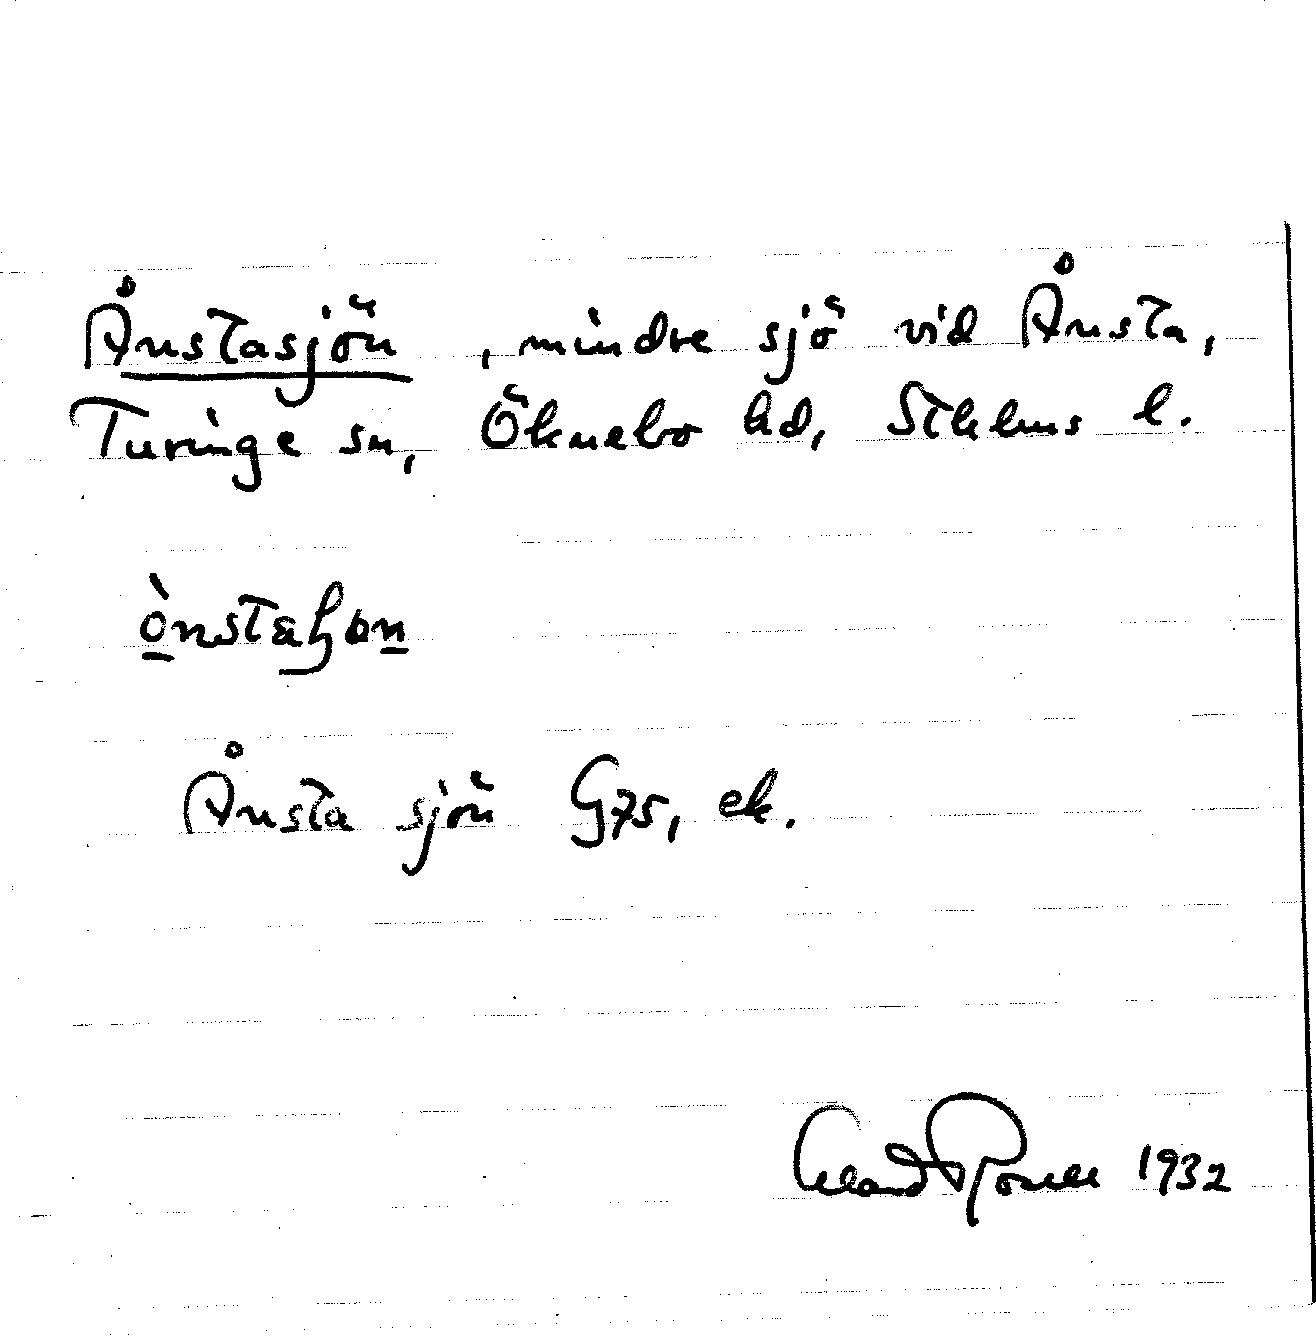 Ånstasjön, mindre sjö vid Ånsta,
Turinge sn, Öknebo hd, Sthlms l.
Ånsta sjön G75, ek.
1932